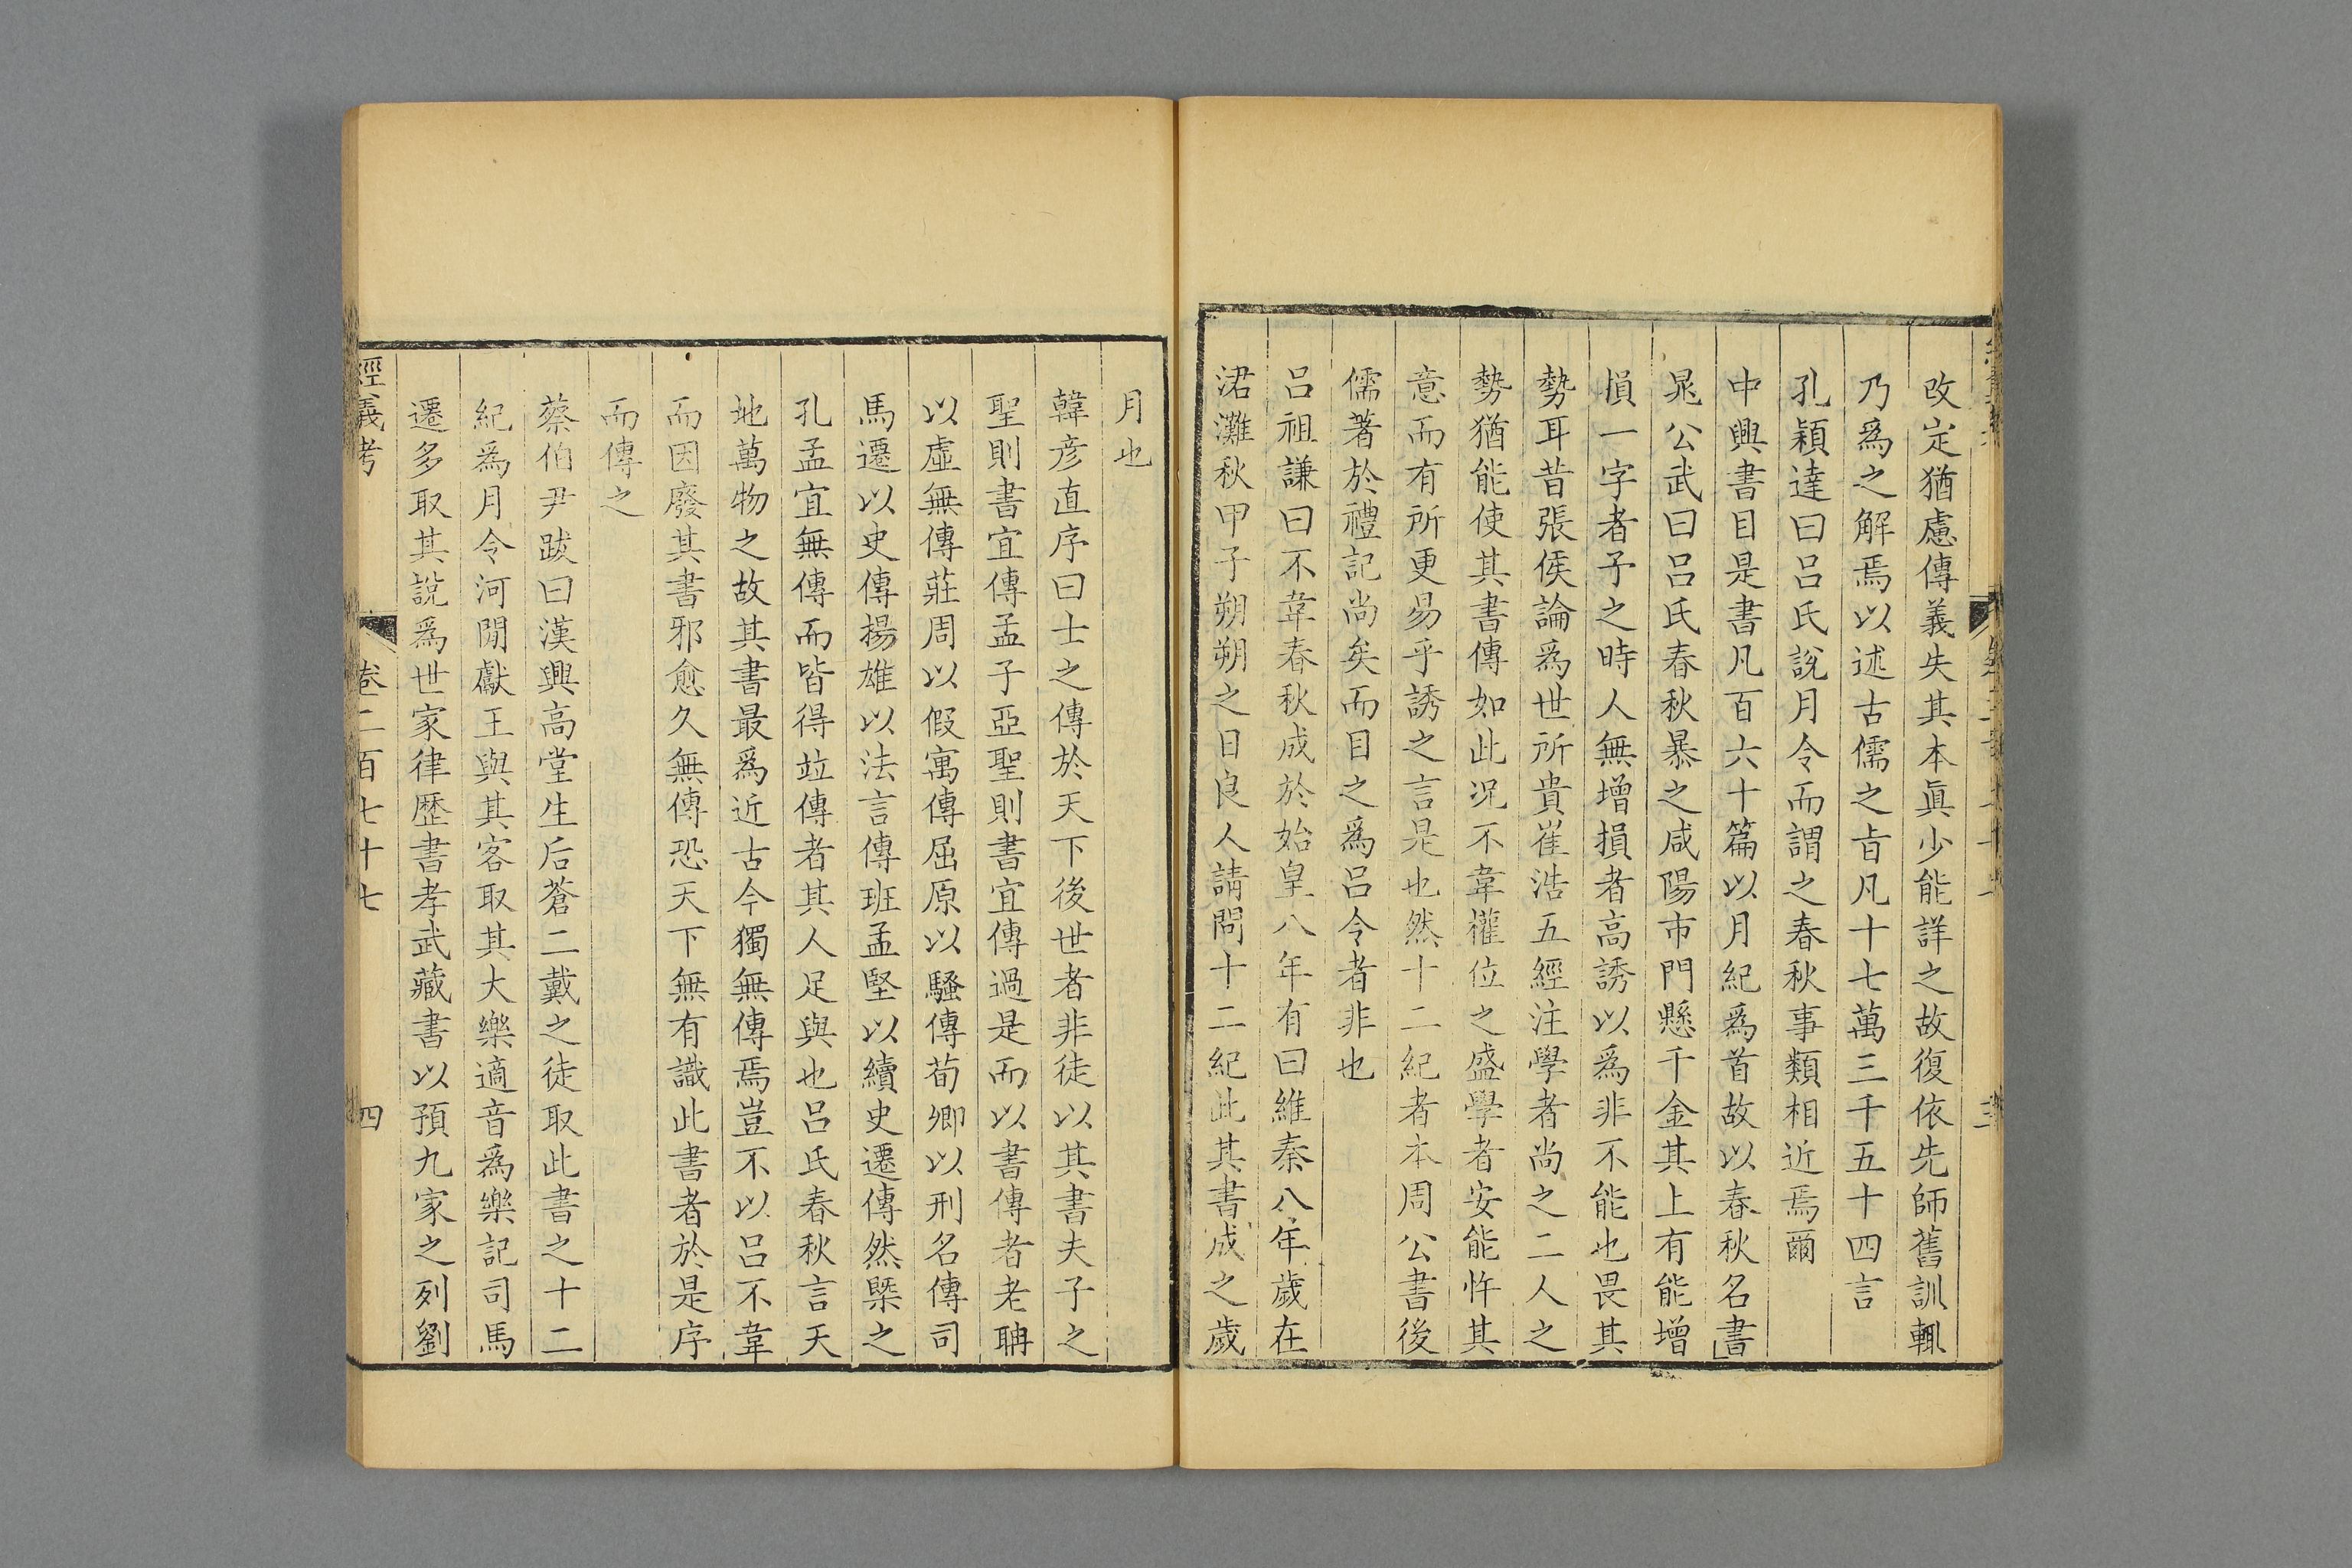 改定猶慮傳義失其本眞少能詳之故復依先師舊訓輒
乃爲之解焉以述古儒之㫖凡十七萬三千五十四言
孔穎達曰呂氏說月令而謂之春秋事類相近焉爾
中興書目是書凡百六十篇以月紀爲首故以春秋名書
晁公武曰呂氏春秋暴之咸陽市門懸千金其上有能增
損一字者予之時人無增損者高誘以爲非不能也畏其
勢耳昔張侯論爲世所貴崔浩五經注學者尚之二人之
勢猶能使其書傳如此况不韋權位之盛學者安能忤其
意而有所更易乎誘之言是也然十二紀者本周公書後
儒著於禮記尚矣而目之爲呂令者非也
呂祖謙曰不韋春秋成於始皇八年有曰維秦八年歲在
涒灘秋甲子朔朔之日良人請問十二紀此其書成之歲
月也
韓彥直序曰士之傳於天下後世者非徒以其書夫子之
聖則書宜傳孟子亞聖則書宜傳過是而以書傳者老聃
以虛無傳莊周以假寓傳屈原以騷傳荀卿以刑名傳司
馬遷以史傳揚雄以法言傳班孟堅以續史遷傳然槩之
孔孟宜無傳而皆得竝傳者其人足與也呂氏春秋言天
地萬物之故其書最爲近古今獨無傳焉豈不以呂不韋
而因廢其書邪愈久無傳恐天下無有識此書者於是序
而傳之
蔡伯尹跋曰漢興高堂生后蒼二戴之徒取此書之十二
紀爲月令河閒獻王與其客取其大樂適音爲樂記司馬
遷多取其說爲世家律歷書孝武藏書以預九家之列劉
經義考
卷二百七十七
四